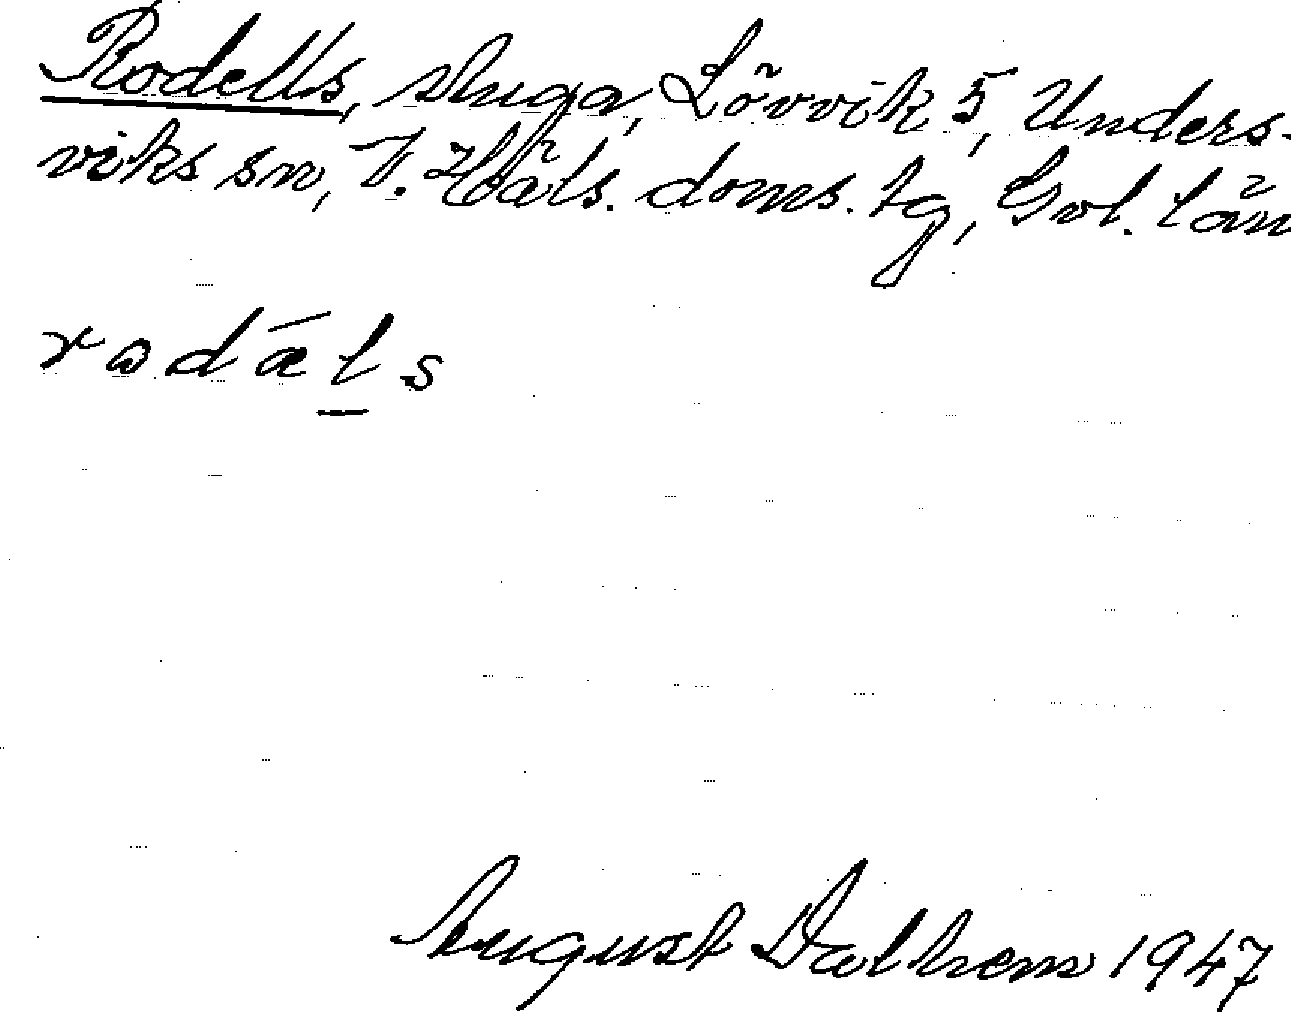 Rodells, stuga, Lövvik 5, Unders-
viks sn, V. Häls. doms. tg, Gvl. län
rodǽls
August Dalhem 1947